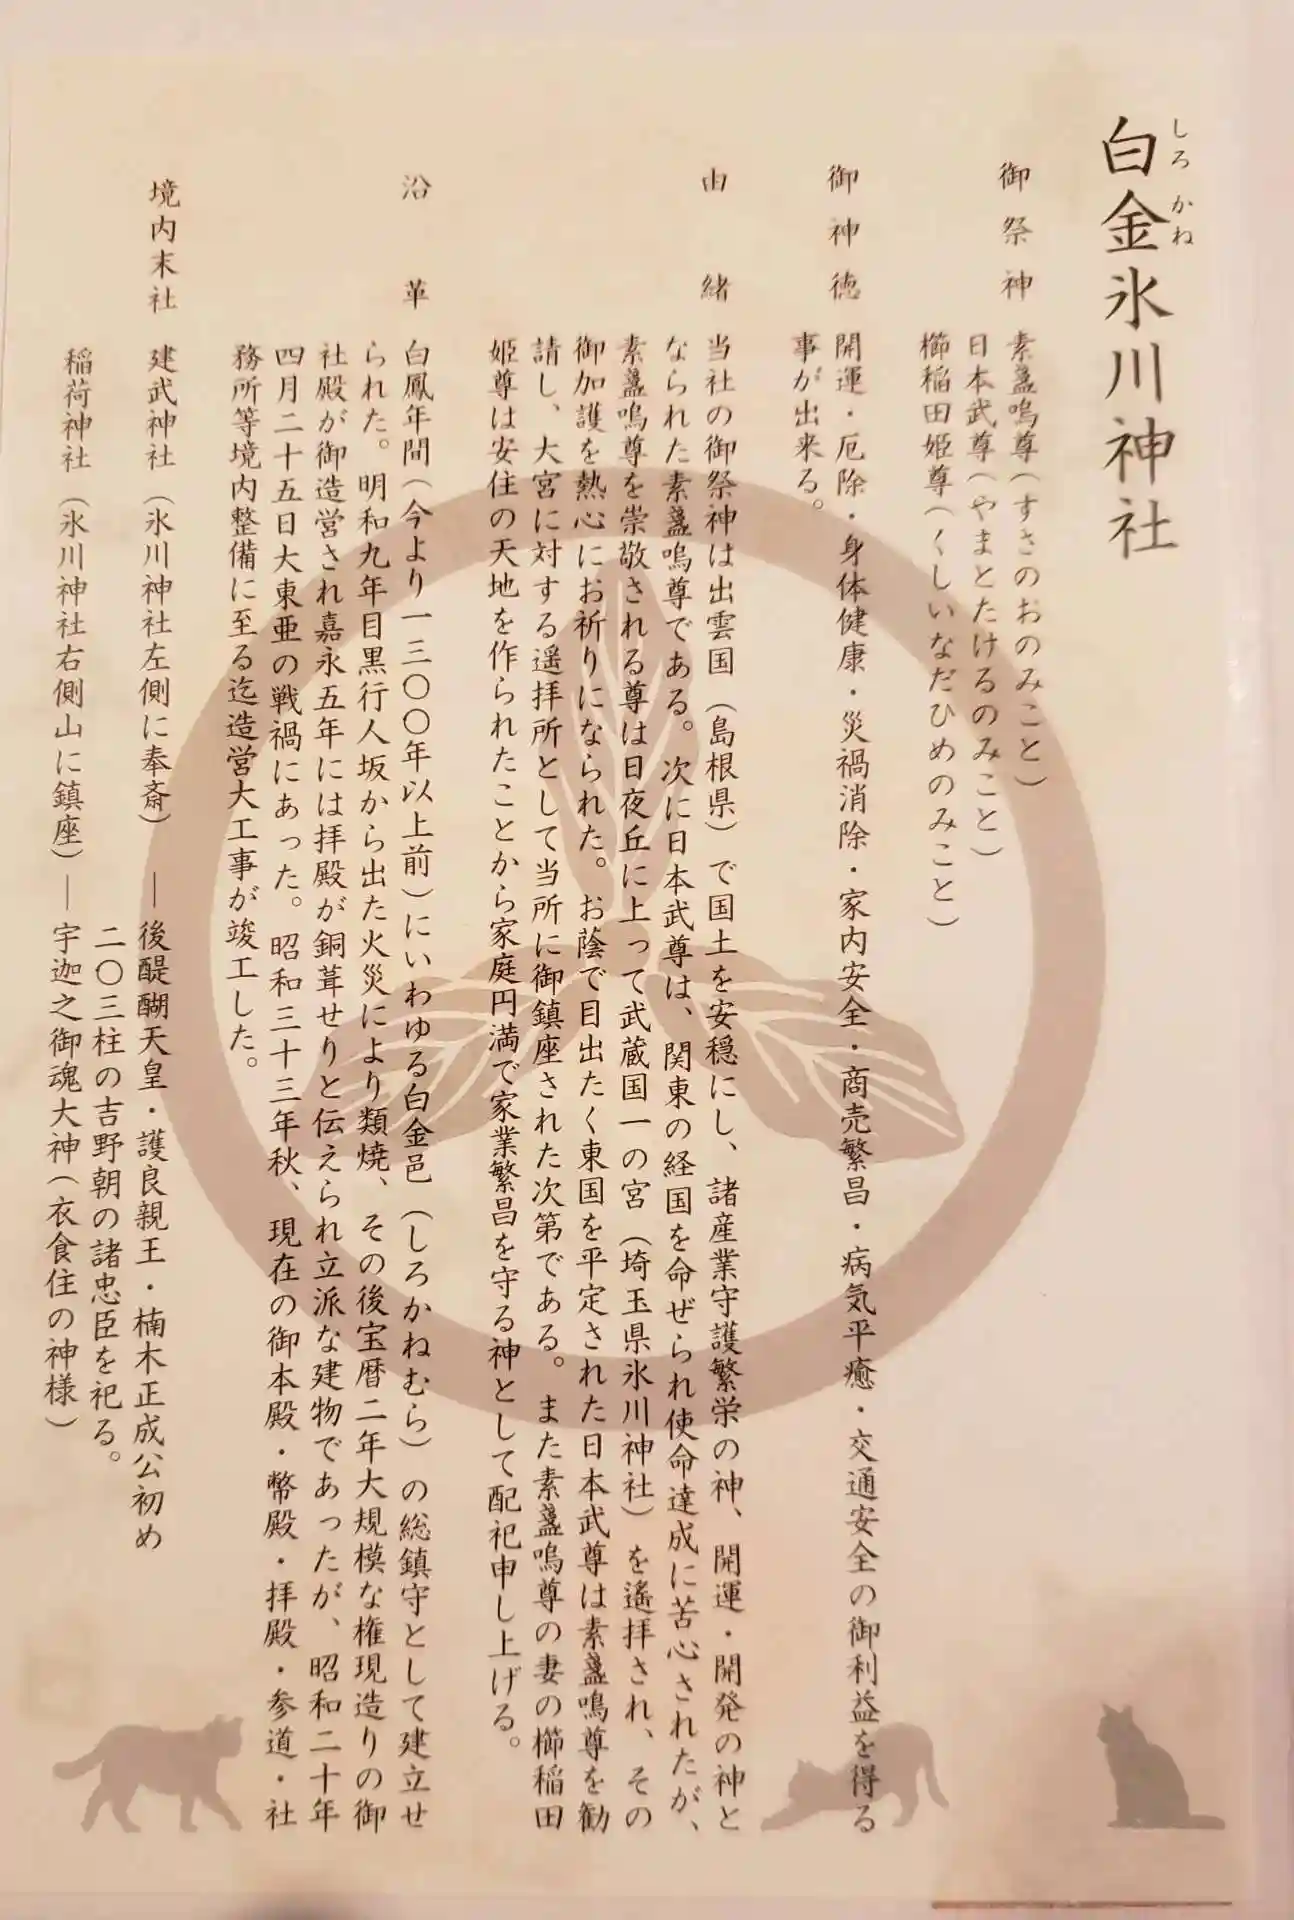 白金氷川神社
しろかね
御祭神
素盞嗚尊(すさのおのみこと)
日本武尊(やまとたけるのみこと)
櫛稲田姫尊(くしいなだひめのみこと)
御神徳
開運・厄除・身体健康・災禍消除・家内安全・商売繁昌・病気平癒・交通安全の御利益を得る
事が出来る。
由緒
当社の御祭神は出雲国(島根県)で国土を安穏にし、諸産業守護繁栄の神、開運・開発の神と
なられた素盞嗚尊である。次に日本武尊は、関東の経国を命ぜられ使命達成に苦心されたが、
素盞嗚尊を崇敬される尊は日夜丘に上って武蔵国一の宮(埼玉県氷川神社)を遙拝され、その
御加護を熱心にお祈りになられた。お蔭で目出たく東国を平定された日本武尊は素盞鳴尊を勧
請し、大宮に対する遥拝所として当所に御鎮座された次第である。また素盞嗚尊の妻の櫛稲田
姫尊は安住の天地を作られたことから家庭円満で家業繁昌を守る神として配祀申し上げる。
沿革
白鳳年間(今より一三〇〇年以上前)にいわゆる白金邑(しろかねむら)の総鎮守として建立せ
られた。明和九年目黒行人坂から出た火災により類焼、その後宝暦二年大規模な権現造りの御
社殿が御造営され嘉永五年には拝殿が銅葺せりと伝えられ立派な建物であったが、昭和二十年
四月二十五日大東亜の戦禍にあった。昭和三十三年秋、現在の御本殿・幣殿・拝殿・参道・社
務所等境内整備に至る迄造営大工事が竣工した。
境内末社
建武神社(氷川神社左側に奉斎)―後醍醐天皇・護良親王・楠木正成公初め
二〇三柱の吉野朝の諸忠臣を祀る。
稲荷神社(氷川神社右側山に鎮座)―宇迦之御魂大神(衣食住の神様)